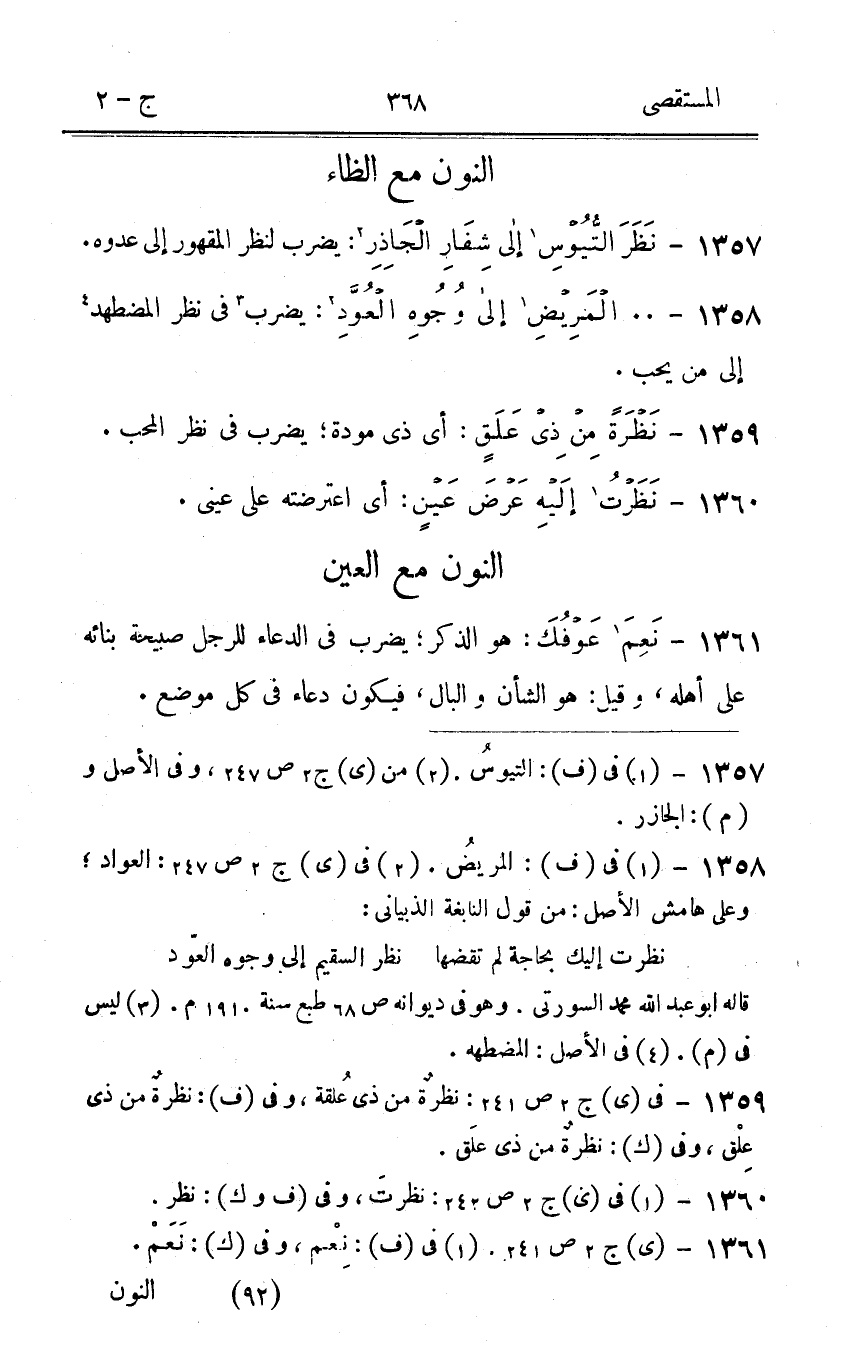 المستقصى ٣٦٨ ج – ٢
النون مع الظاء
١٣٥٧ – نَظَرَ التُّيُوْسِ١ إِلٰى شِفَارِ الْجَازِرِ٢: يضرب لنظر المقهور إلى عدوه.
١٣٥٨ – ٠٠ الْمَرِيْضِ١ إِلىٰ وُجُوهِ الْعُوَّدِ٢: يضرب٣ فى نظر المضطهد٤
إلى من يحب .
١٣٥٩ – نَظْرَةً مِنْ ذِىْ عَلَقٍ : أى ذى مودة؛ يضرب فى نظر المحب .
١٣٦٠ – نَظَرْتُ١ إِلَيْهِ عَرْضَ عَيْنٍ: أى اعترضته على عينى .
النون مع العين
١٣٦١ – نَعِمَ١ عَوْفُكَ : هو الذكر؛ يضرب فى الدعاء للرجل صبيحة بنائه
على أهله، و قيل: هو الشأن و البال، فيكون دعاء فى كل موضع .
١٣٥٧ – (١) فى (ف): التيوسُ .(٢) من (ى) ج٢ ص ٢٤٧ ، و فى الأصل و
(م): الجازر .
١٣٥٨ – (١) فى (ف) : المريضُ . (٢) فى (ى) ج ٢ ص ٢٤٧ : العواد ؛
وعلى هامش الأصل : من قول النابغة الذبيانى :
نظرت إليك بحاجة لم تقضها نظر السقيم إلى وجوه العوّد
قاله ابو عبد الله محمد السورتى . وهو فى ديوانه ص ٦٨ طبع سنة ١٩١٠ م . (٣) ليس
فى (م) . (٤) فى الأصل : المضطهه .
١٣٥٩ – فى (ى) ج ٢ ص ٢٤١ : نظرةٌ من ذى عُلقة ، و فى (ف): نظرةٌ من ذى
عِلْقٍ ، و فى (ك) : نظرةٌ من ذى علَق .
١٣٦٠ – (١) فى (ى) ج ٢ ص ٢٤٢ : نظرتَ ، و فى (ف و ك) : نظر .
١٣٦١ – (ى) ج ٢ ص ٢٤١ . (١) فى (ف) : نِعْم ، و فى (ك) : نَعَمْ .
(٩٢) النون